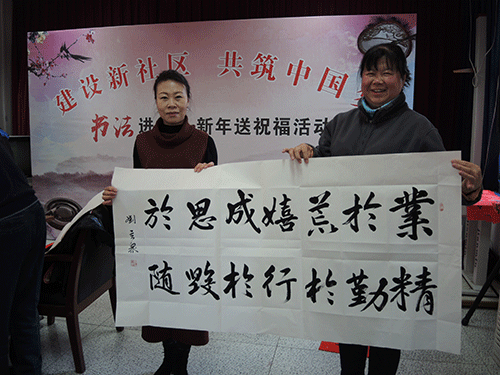 建设新社区 共筑中国
书法进 新年送祝福活动
業精
於勤
荒於
嬉行
成於
思毁
於随